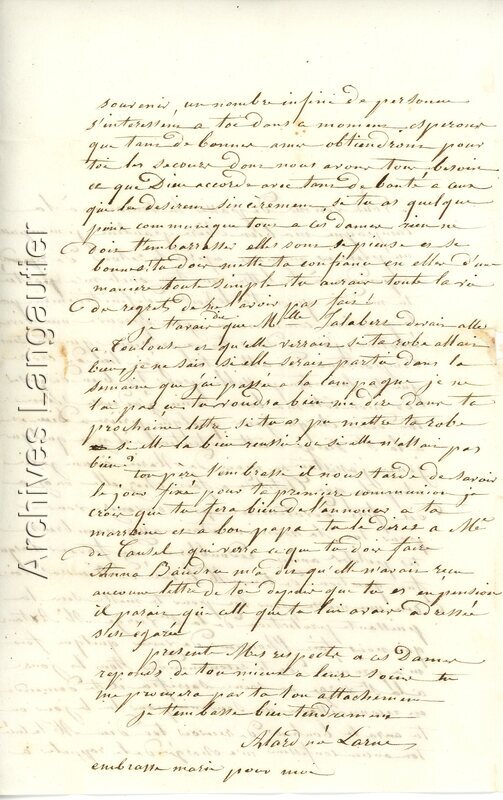 souvenir, un nombre infini de personne
s'interesse a toi dans a moment esperons
que tans de bonnes ames obtiendront pour
toi les secours dont nous avons tous besoin
ce que Dieu accorde avec tans de bonté a ceux
qui la desirens sincerement, si tu as quelque
peine communique tous a ces dames rien ne
dois t'embarrasser elles sons si pieuse et si
bonnes tu dois mettre ta confiance en elles d'une
manière tout simple tu aurais toute ta vie
du regret de ne l'avoir pas fais.
je t'avais dis que Melle Jalabert devais aller
a Toulouse et qu'elle verrais si ta robe allais
bien, je ne sais si elle serais partie dans la
semaine que j'ai passée a la campagne je ne
l'ai pas vu tu voudra bien me dire dans ta
prochaine lettre si tu as pu mettre ta robe
si elle la bien reussi ou si elle n'allais pas
bien.
ton père t'embrasse il nous tarde de savoir
le jour fixé pour ta premiere communion je
crois que tu fera bien de l'annoncer a ta
marraine et a bon papa tu le diras a Me
de Causel qui verra ce que tu dois faire
Anna Baudru m'a dis qu'elle n'avais reçu
aucune lettre de toi depuis que tu es en pension
il parais que celle que tu lui avais adressée
s'est égarée
présente Mes respects a ces Dames
reponds de ton mieux a leurs soins tu
me prouvera par la ton attachement
je t'embrasse bien tendrement
Alard né Larue
embrasse marie pour moi
Archives Langautier